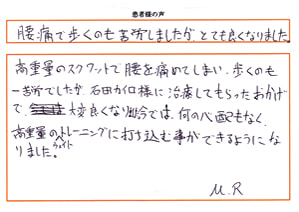 患者様の声
腰痛で歩くのも苦労しましたが、とても良くなりました。
高重量のスクワットで腰を痛めてしまい、歩くのも
一苦労でしたが、石田カイロ様に治療してもらったおかげ
で、大変良くなり今では、何の心配もなく、
高重量のウェイトトレーニングに打ち込む事ができるようにな
りました。
M.R